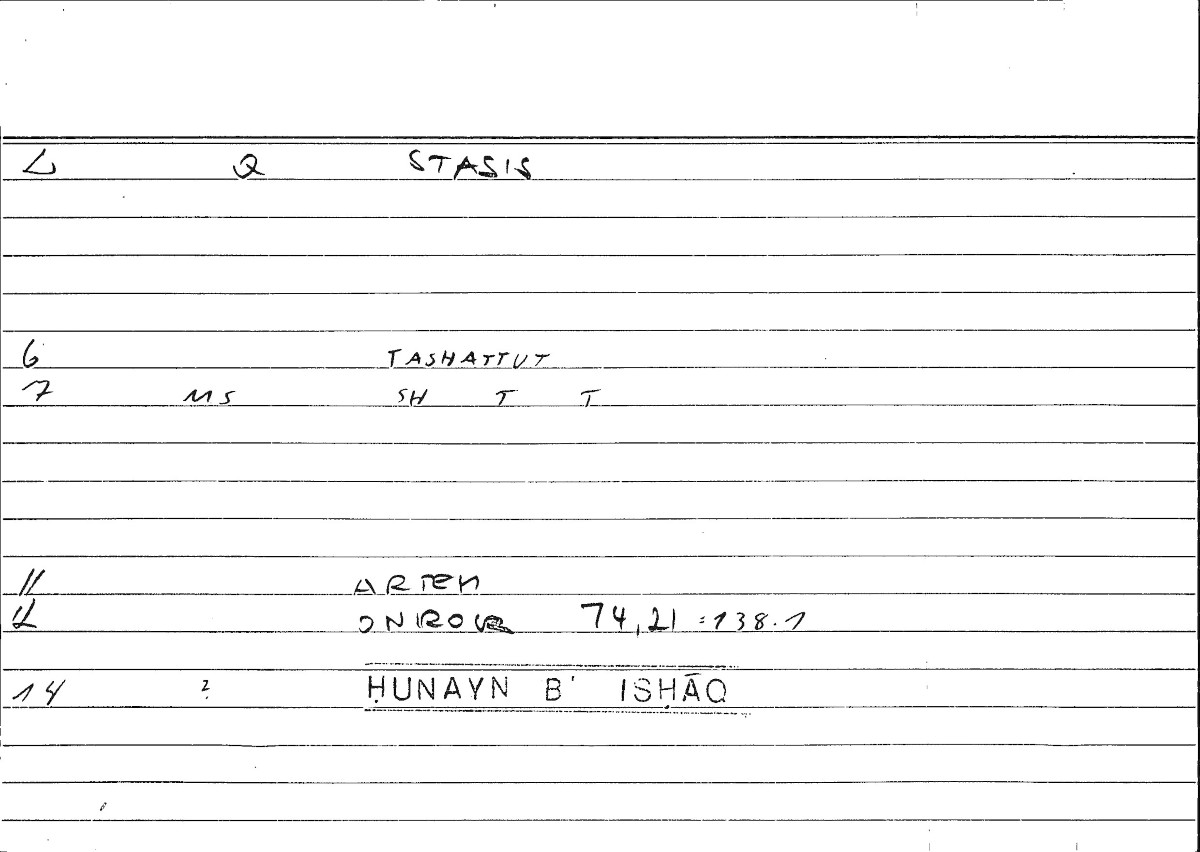 Q STASIS
6 TASHATTUT
7 MS SH T T
11 ARTEM
12 74,21 =138.1
14 ? ḤUNAYN B' ISḤĀQ